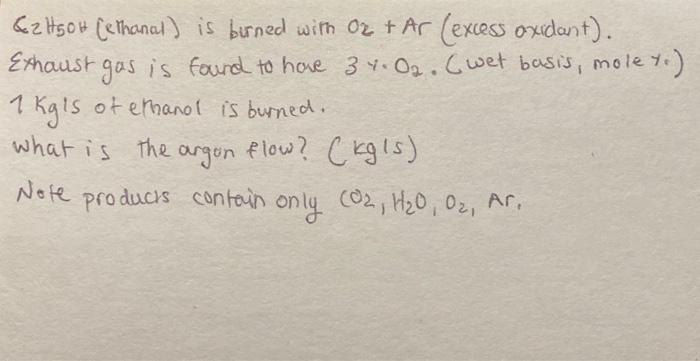 C2H5OH (ethanal) is burned with O2 + Ar (excess oxidant).
Exhaust gas is found to have 3 %. O2. (wet basis, mole %.)
1 Kg/s of ethanol is burned.
what is the argon flow? (kg/s)
Note products contain only CO2, H2O, O2, Ar.